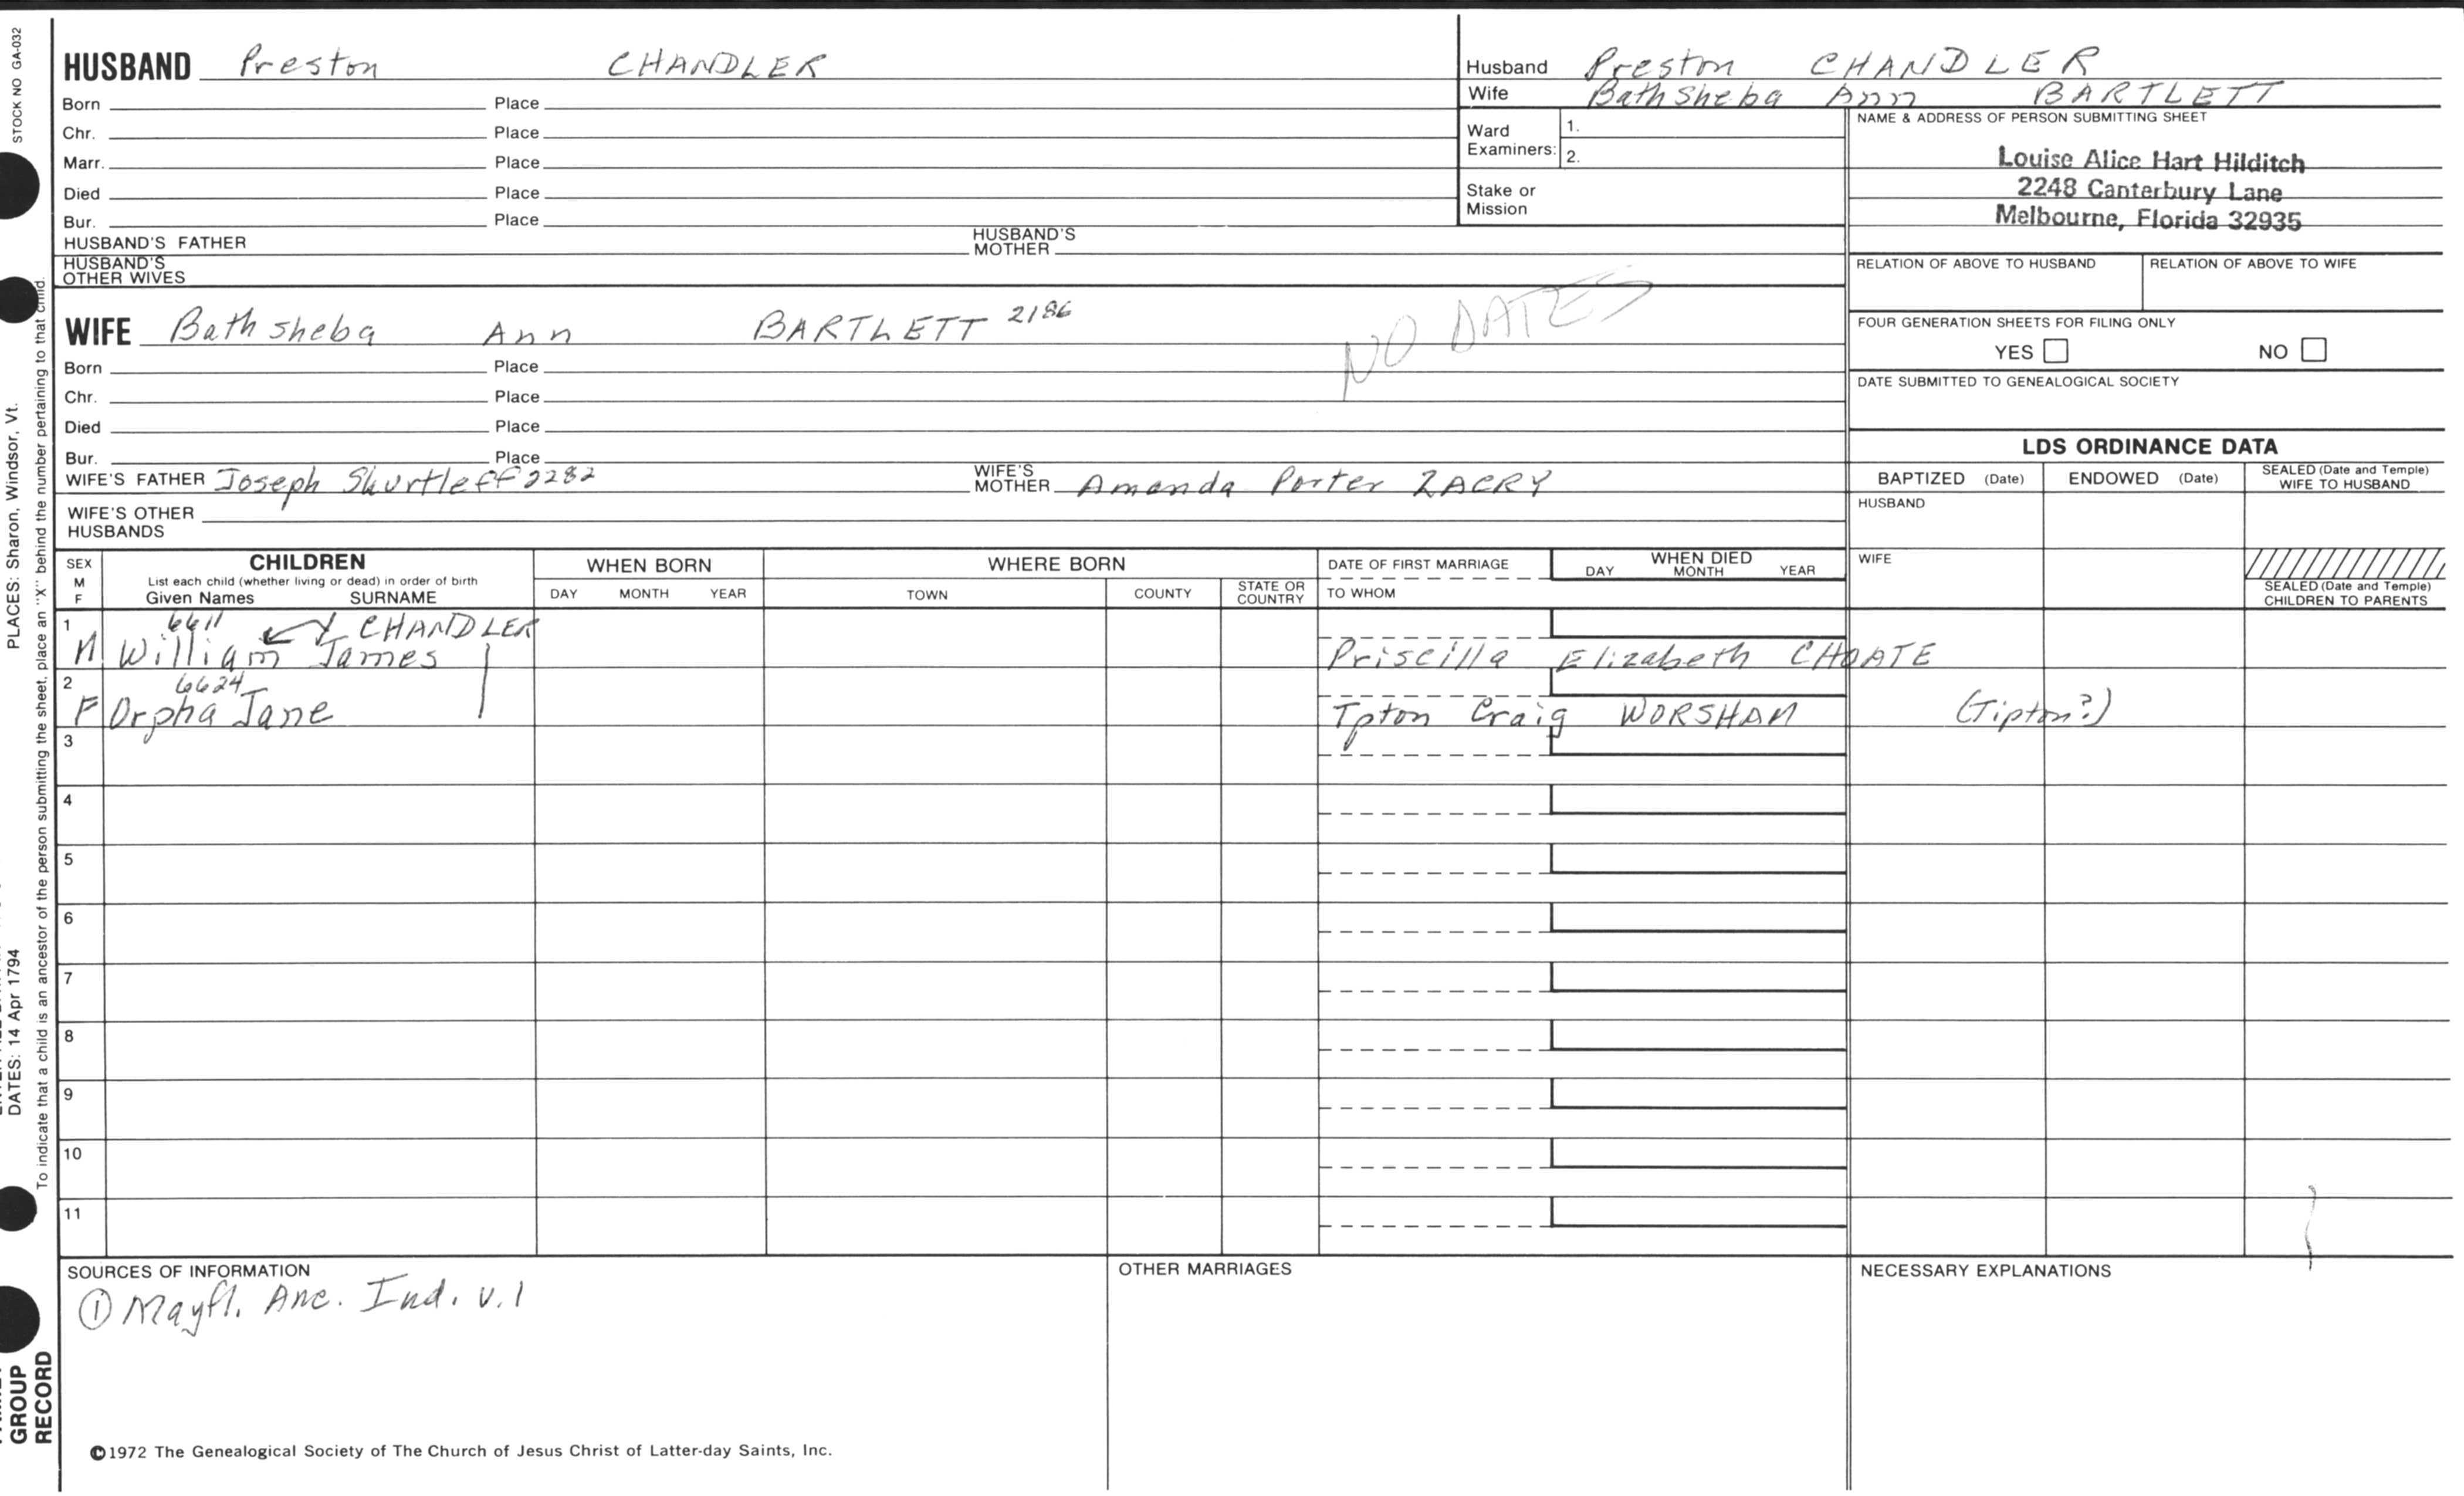 STOCK NO GA-032
HUSBAND Preston CHANDLER
Born Place
Chr. Place
Marr. Place
Died Place
Bur. Place
HUSBAND'S FATHER HUSBAND'S MOTHER
HUSBAND'S OTHER WIVES
Husband Preston CHANDLER
Wife Bathsheba Ann BARTLETT
Ward Examiners: 1.
2.
Stake or Mission
NAME & ADDRESS OF PERSON SUBMITTING SHEET
Louise Alice Hart Hilditch
2248 Canterbury Lane
Melbourne, Florida 32935
RELATION OF ABOVE TO HUSBAND RELATION OF ABOVE TO WIFE
FOUR GENERATION SHEETS FOR FILING ONLY
YES NO
DATE SUBMITTED TO GENEALOGICAL SOCIETY
WIFE Bathsheba Ann BARTLETT 2186
NO DATES
Born Place
Chr. Place
Died Place
Bur. Place
WIFE'S FATHER Joseph Shurtleff 2282 WIFE'S MOTHER Amanda Porter ZACRY
WIFE'S OTHER HUSBANDS
LDS ORDINANCE DATA
BAPTIZED (Date) ENDOWED (Date) SEALED (Date and Temple) WIFE TO HUSBAND
HUSBAND
WIFE
SEALED (Date and Temple) CHILDREN TO PARENTS
SEX M F
CHILDREN
List each child (whether living or dead) in order of birth
Given Names SURNAME
WHEN BORN
DAY MONTH YEAR
WHERE BORN
TOWN COUNTY STATE OR COUNTRY
DATE OF FIRST MARRIAGE
TO WHOM
WHEN DIED
DAY MONTH YEAR
1 6611 CHANDLER
M William James Priscilla Elizabeth CHOATE
2 6624
F Orpha Jane Tpton Craig WORSHAM (Tipton?)
3
4
5
6
7
8
9
10
11
SOURCES OF INFORMATION
① Mayfl. Anc. Ind. v.1
OTHER MARRIAGES
NECESSARY EXPLANATIONS
©1972 The Genealogical Society of The Church of Jesus Christ of Latter-day Saints, Inc.
PLACES: Sharon, Windsor, Vt.
DATES: 14 Apr 1794
To indicate that a child is an ancestor of the person submitting the sheet, place an "X" behind the number pertaining to that child.
GROUP
RECORD